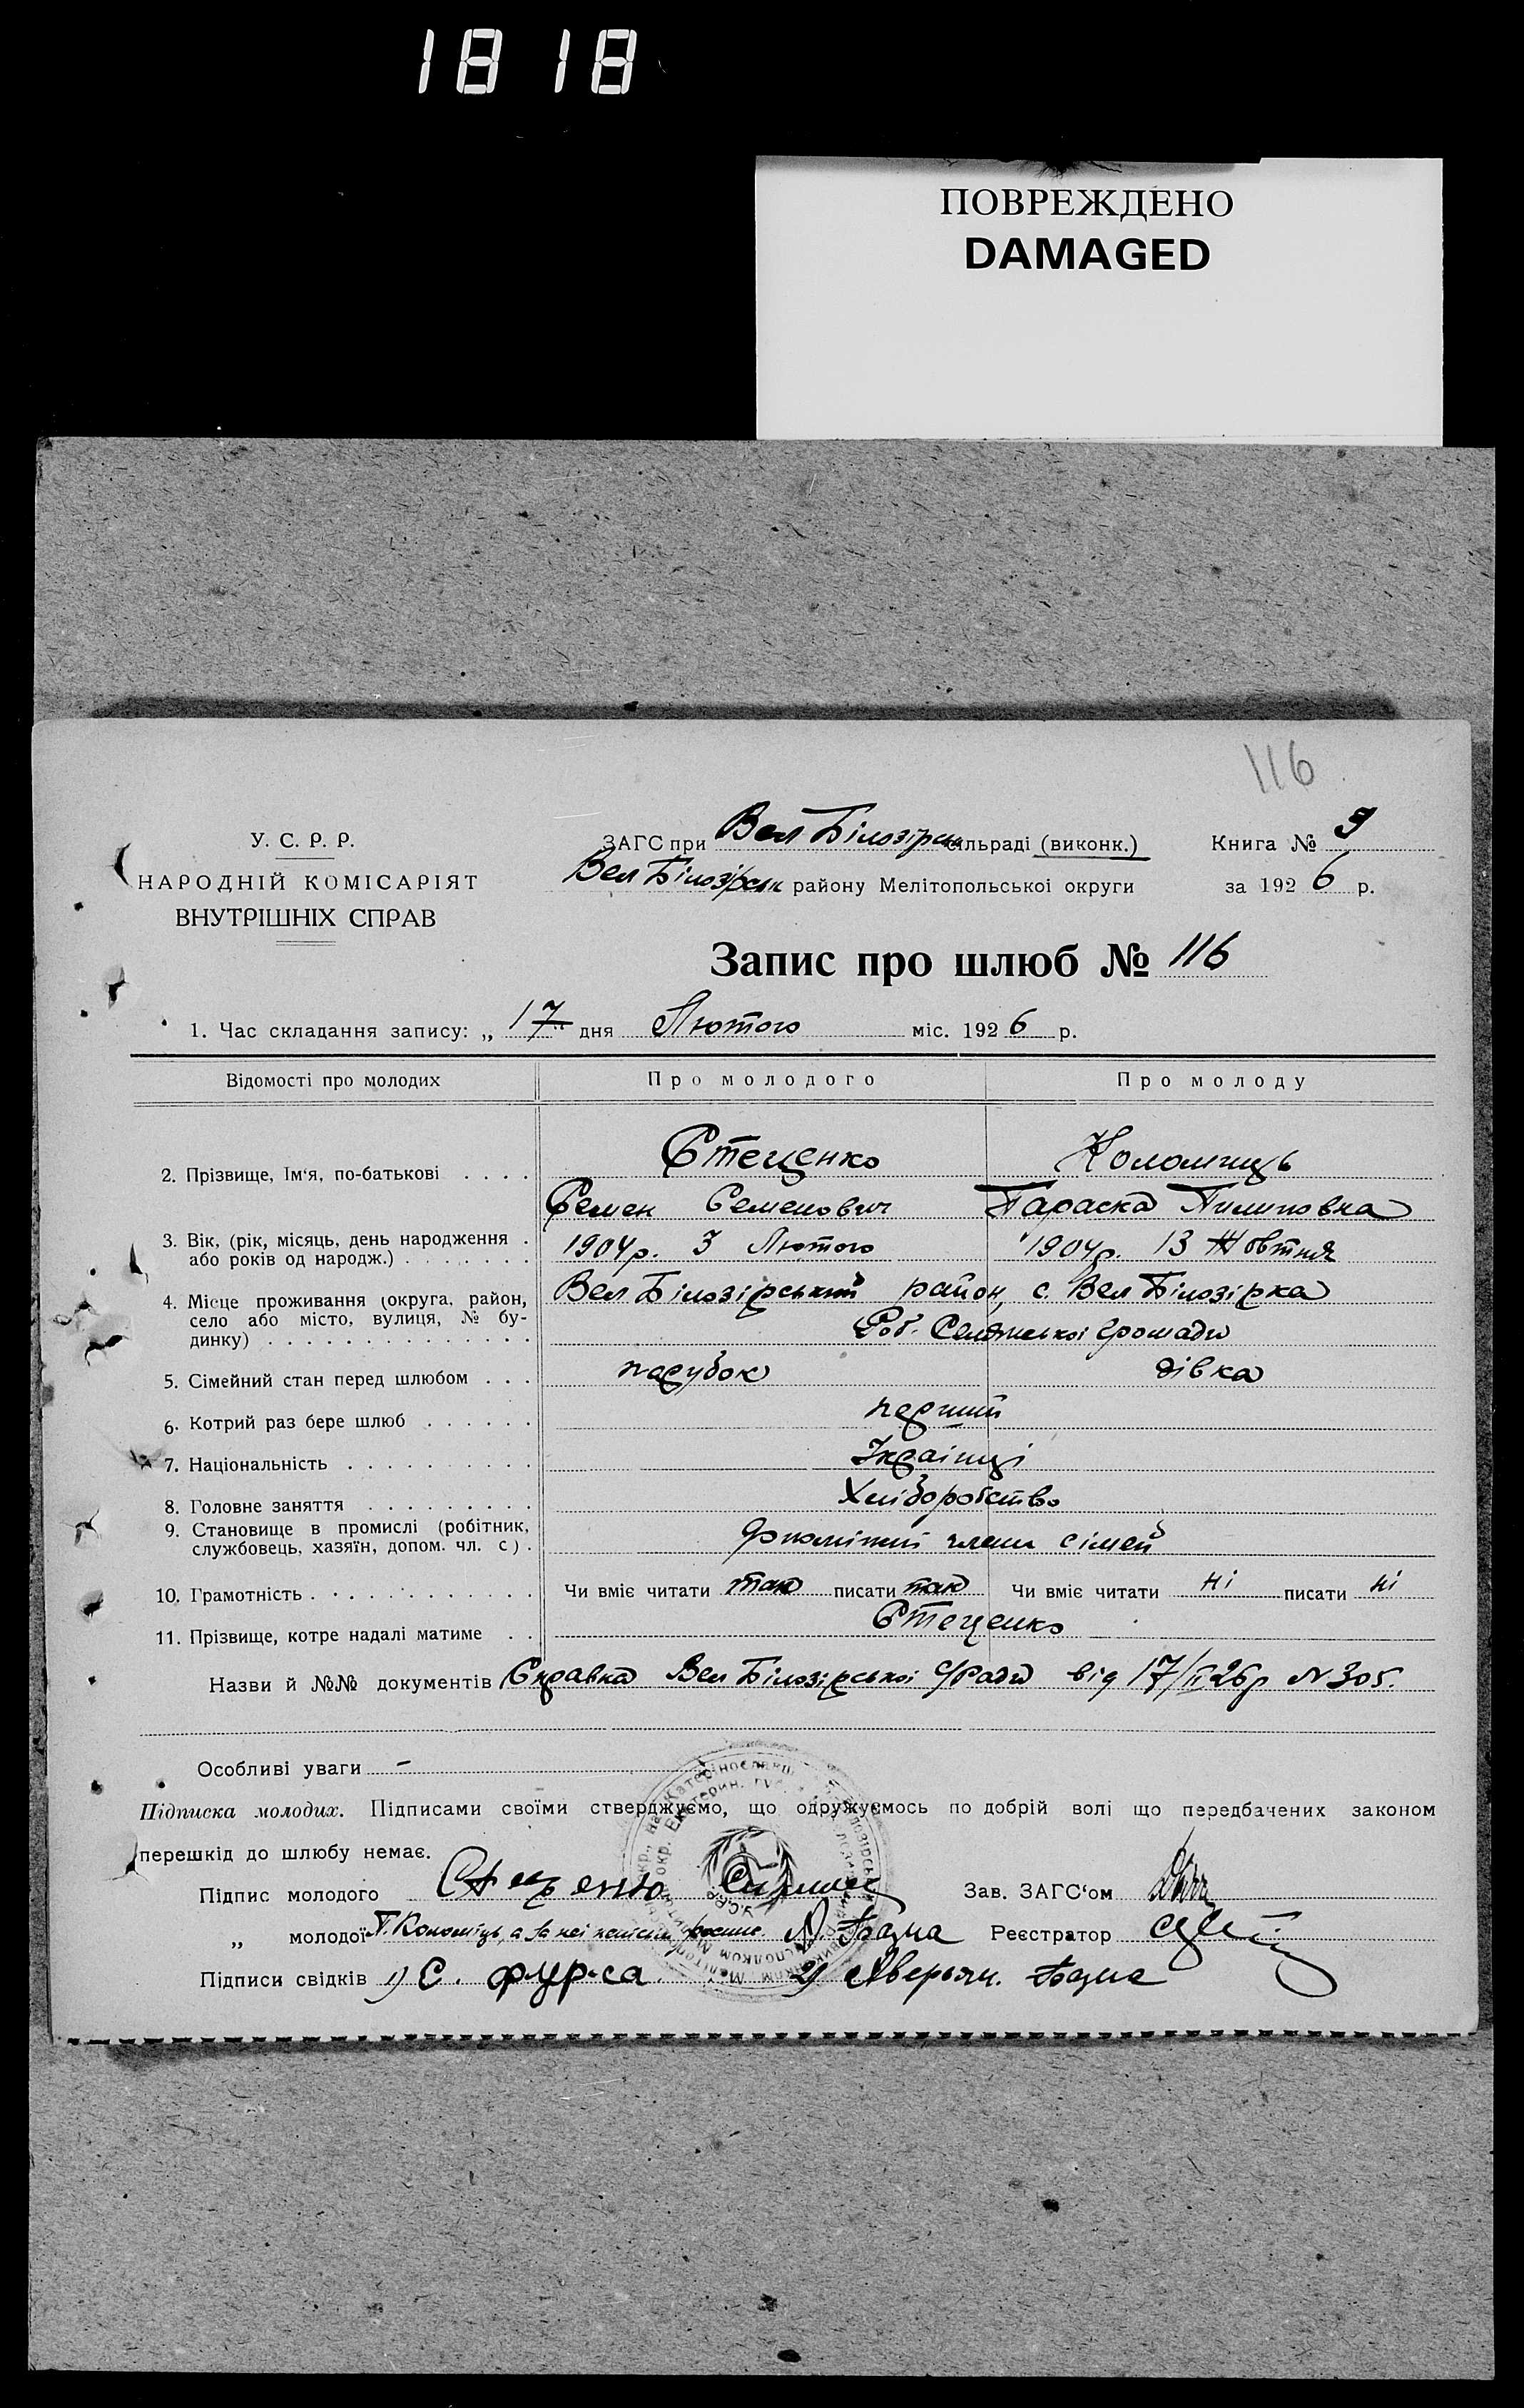 1818
ПОВРЕЖДЕНО
DAMAGED
116
У. С. Р. Р.
НАРОДНІЙ КОМІСАРІЯТ
ВНУТРІШНІХ СПРАВ
ЗАГС при Вел Білозірск сільраді (виконк.) Книга № 9
Вел Білозірськ району Мелітопольськоі округи за 1926 р.
Запис про шлюб № 116
1. Час складання запису: „17" дня Лютого міс. 1926 р.
Відомості про молодих Про молодого Про молоду
2. Прізвище, Ім'я, по-батькові . . . . Стеценко Коломиець
Семен Семенович Параска Пилиповна
3. Вік, (рік, місяць, день народження . 1904р. 3 Лютого 1904р. 13 Жовтня
або років од народж.) . . . . . . .
4. Місце проживання (округа, район, Вел Білозірський район, с. Вел Білозірка
село або місто, вулиця, № бу-
динку) . . . . . . . . . . . . . . Селянськоі Громади
5. Сімейний стан перед шлюбом . . . парубок дівка
6. Котрий раз бере шлюб . . . . . . перший
7. Національність . . . . . . . . . . Украінці
8. Головне заняття . . . . . . . . . Хліборобство
9. Становище в промислі (робітник, члени сімей
службовець, хазяїн, допом. чл. с) .
10. Грамотність . . . . . . . . . . . . Чи вміє читати так писати так Чи вміє читати ні писати ні
11. Прізвище, котре надалі матиме . . Стеценко
Назви й №№ документів Справка Вел Білозірськоі с/Ради від 17/II 26р N 305.
Особливі уваги –
Підписка молодих. Підписами своїми стверджуємо, що одружуємось по добрій волі що передбачених законом
перешкід до шлюбу немає.
Підпис молодого Стеценко Зав. ЗАГС'ом
„ молодої П. Коломієць, а за неі Реєстратор
Підписи свідків 1) С. Фурса 2) Аверьян.